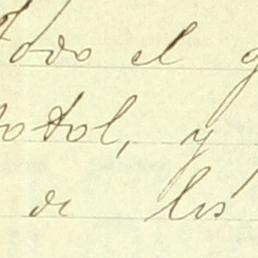 todo el g
total, y
de los